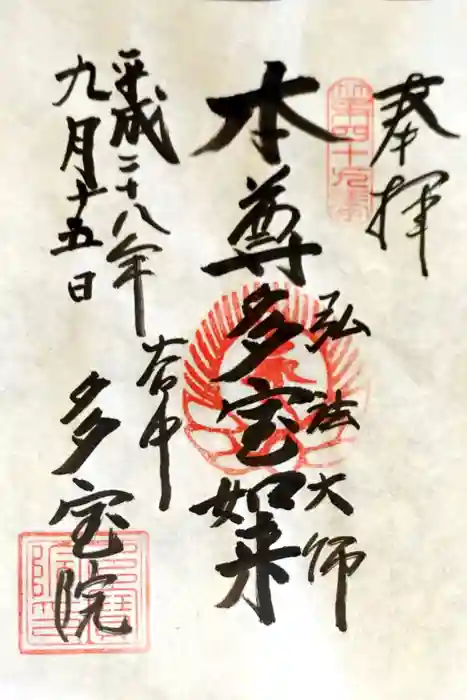 奉拝
第四十九番
弘法大師
本尊多宝如来
平成二十八年
九月十五日
谷中
多宝院